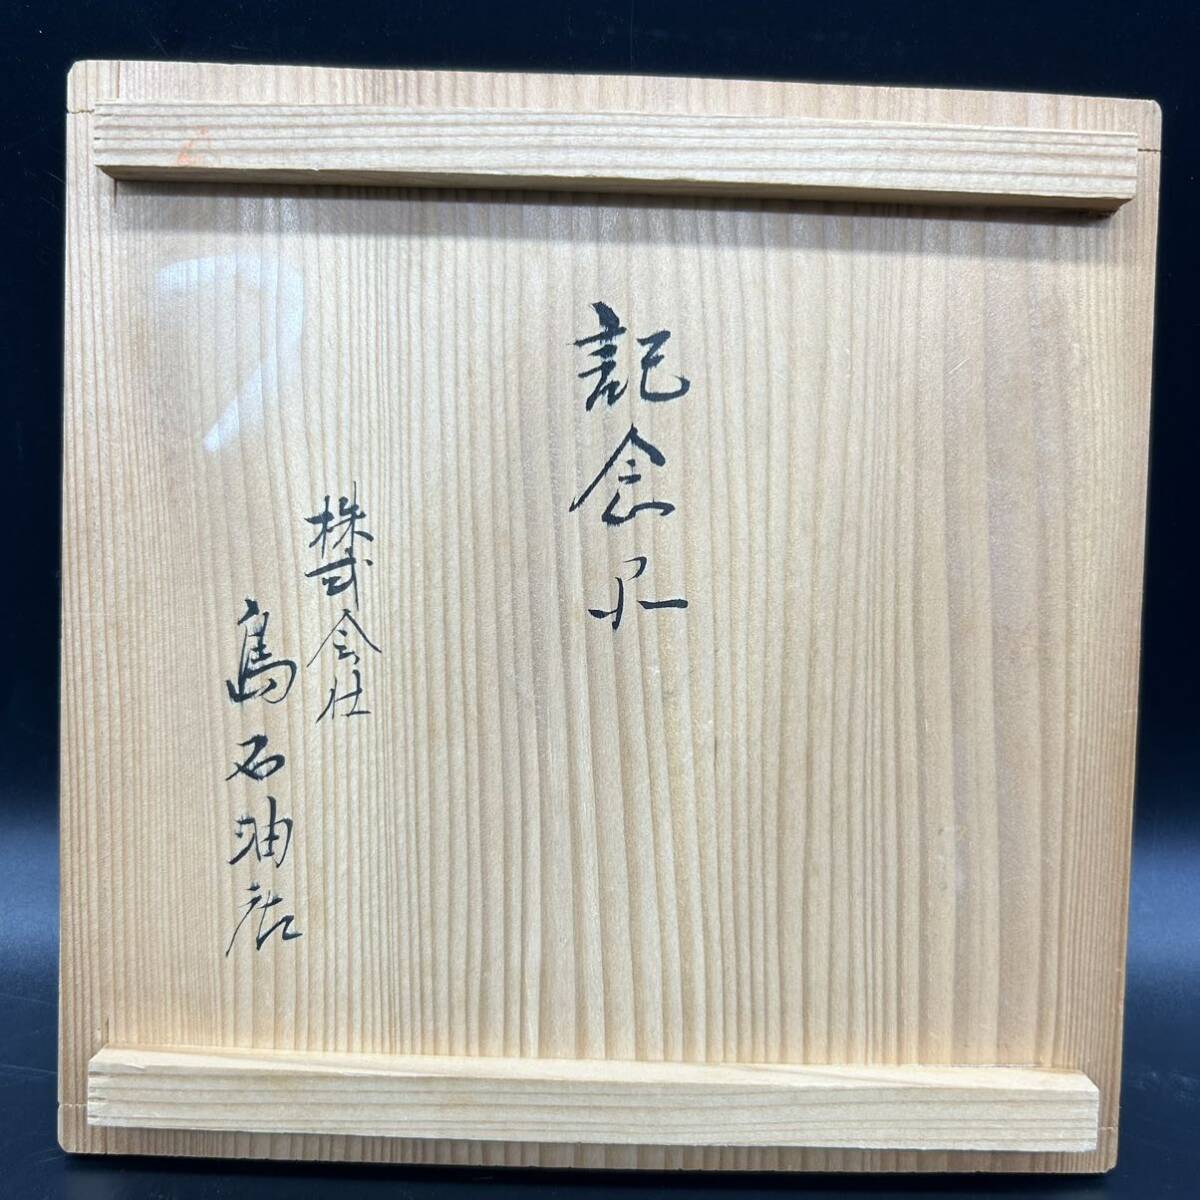 記念品
株式会社
島石油店